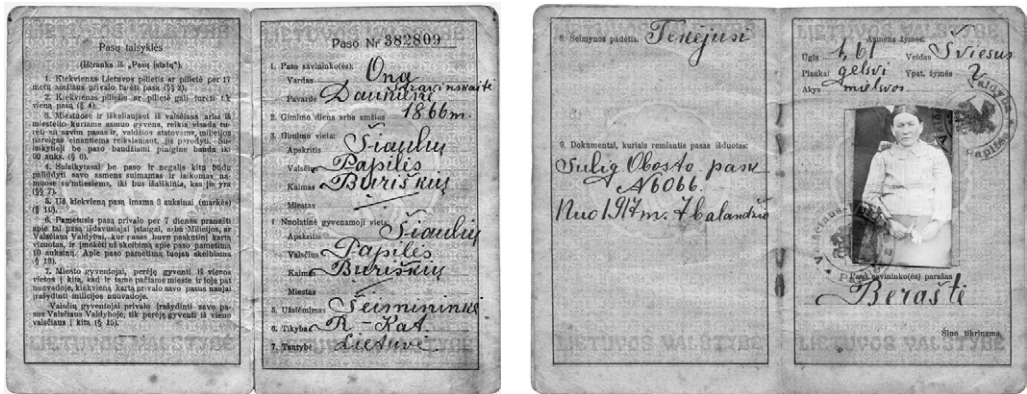 Pasų taisyklės
(Ištrauka iš „Pasų įstatų“).
1. Kiekvienas Lietuvos pilietis ar pilietė per 17
metų amžiaus privalo turėti pasą (§§ 2).
2. Kiekvienas pilietis ar pilietė gali turėti tik
vieną pasą (§ 4).
3. Miestuose ir iškeliaujant iš valsčiaus arba iš
miestelio kuriame asmuo gyvena, reikia visada tu-
rėti su savim pasas ir, valdžios atstovams, milicijos
pareigas einantiems reikalaujant, jis parodyti.
be paso baudžiami pinigine bauda iki
60 auks. (§ 6).
4. Sulaikytasai be paso ir negalįs kitu būdu
paliudyti savo asmens suimamas ir laikomas
iki bus išaiškinta, kas jis yra
(§§ 7).
5. Už kiekvieną pasą imama 3 auksinai (markės)
(§ 10).
6. Pametusis pasą privalo per 7 dienas pranešti
apie tai pasą išdavusiajai įstaigai, arba Milicijos, ar
Valsčiaus Valdybai, kur pasas buvo paskutinį kartą
vizuotas, ir įmokėti už skelbimą apie paso pametimą
10 auksinų. Apie paso pametimą tuojau skelbiama
(§ 19).
7. Miesto gyventojai, perėję gyventi iš vienos
vietos į kitą, kad ir tame pačiame mieste ir toje pat
nuovadoje, kiekvieną kartą privalo savo pasus naujai
įrašydinti milicijos nuovadoje.
Valsčių gyventojai privalo įrašydinti savo pa-
sus Valsčiaus Valdyboje, tik perėję gyventi iš vieno
valsčiaus į kitą (§ 15).
LIETUVOS VALSTYBĖ
Paso Nr 382809
1. Paso savininko(ės):
Vardas Ona
Pavardė Dauškienė
2. Gimimo diena arba amžius 1866 m.
3. Gimimo vieta:
Apskritis Šiaulių
Valsčius Papilės
Kaimas Buriškių
Miestas
4. Nuolatinė gyvenamoji vieta:
Apskritis Šiaulių
Valsčius Papilės
Kaimas Buriškių
Miestas
5. Užsiėmimas Šeimininkė
6. Tikyba R-Kat.
7. Tautybė Lietuvė
LIETUVOS VALSTYBĖ
8. Šeimynos padėtis.
9. Dokumentai, kuriais remiantis pasas išduotas:
Sulig Obosto pasu
N 6066.
Nuo 1917 m. 7 balandžio
LIETUVOS VALSTYBĖ
Asmens žymės:
Ūgis 1,61 Veidas Šviesus
Plaukai gelsvi Ypat. žymės
Akys mielvos
Paso savininko(ės) parašas
Beraštė
Šiuo tikrinama,
LIETUVOS VALSTYBĖ